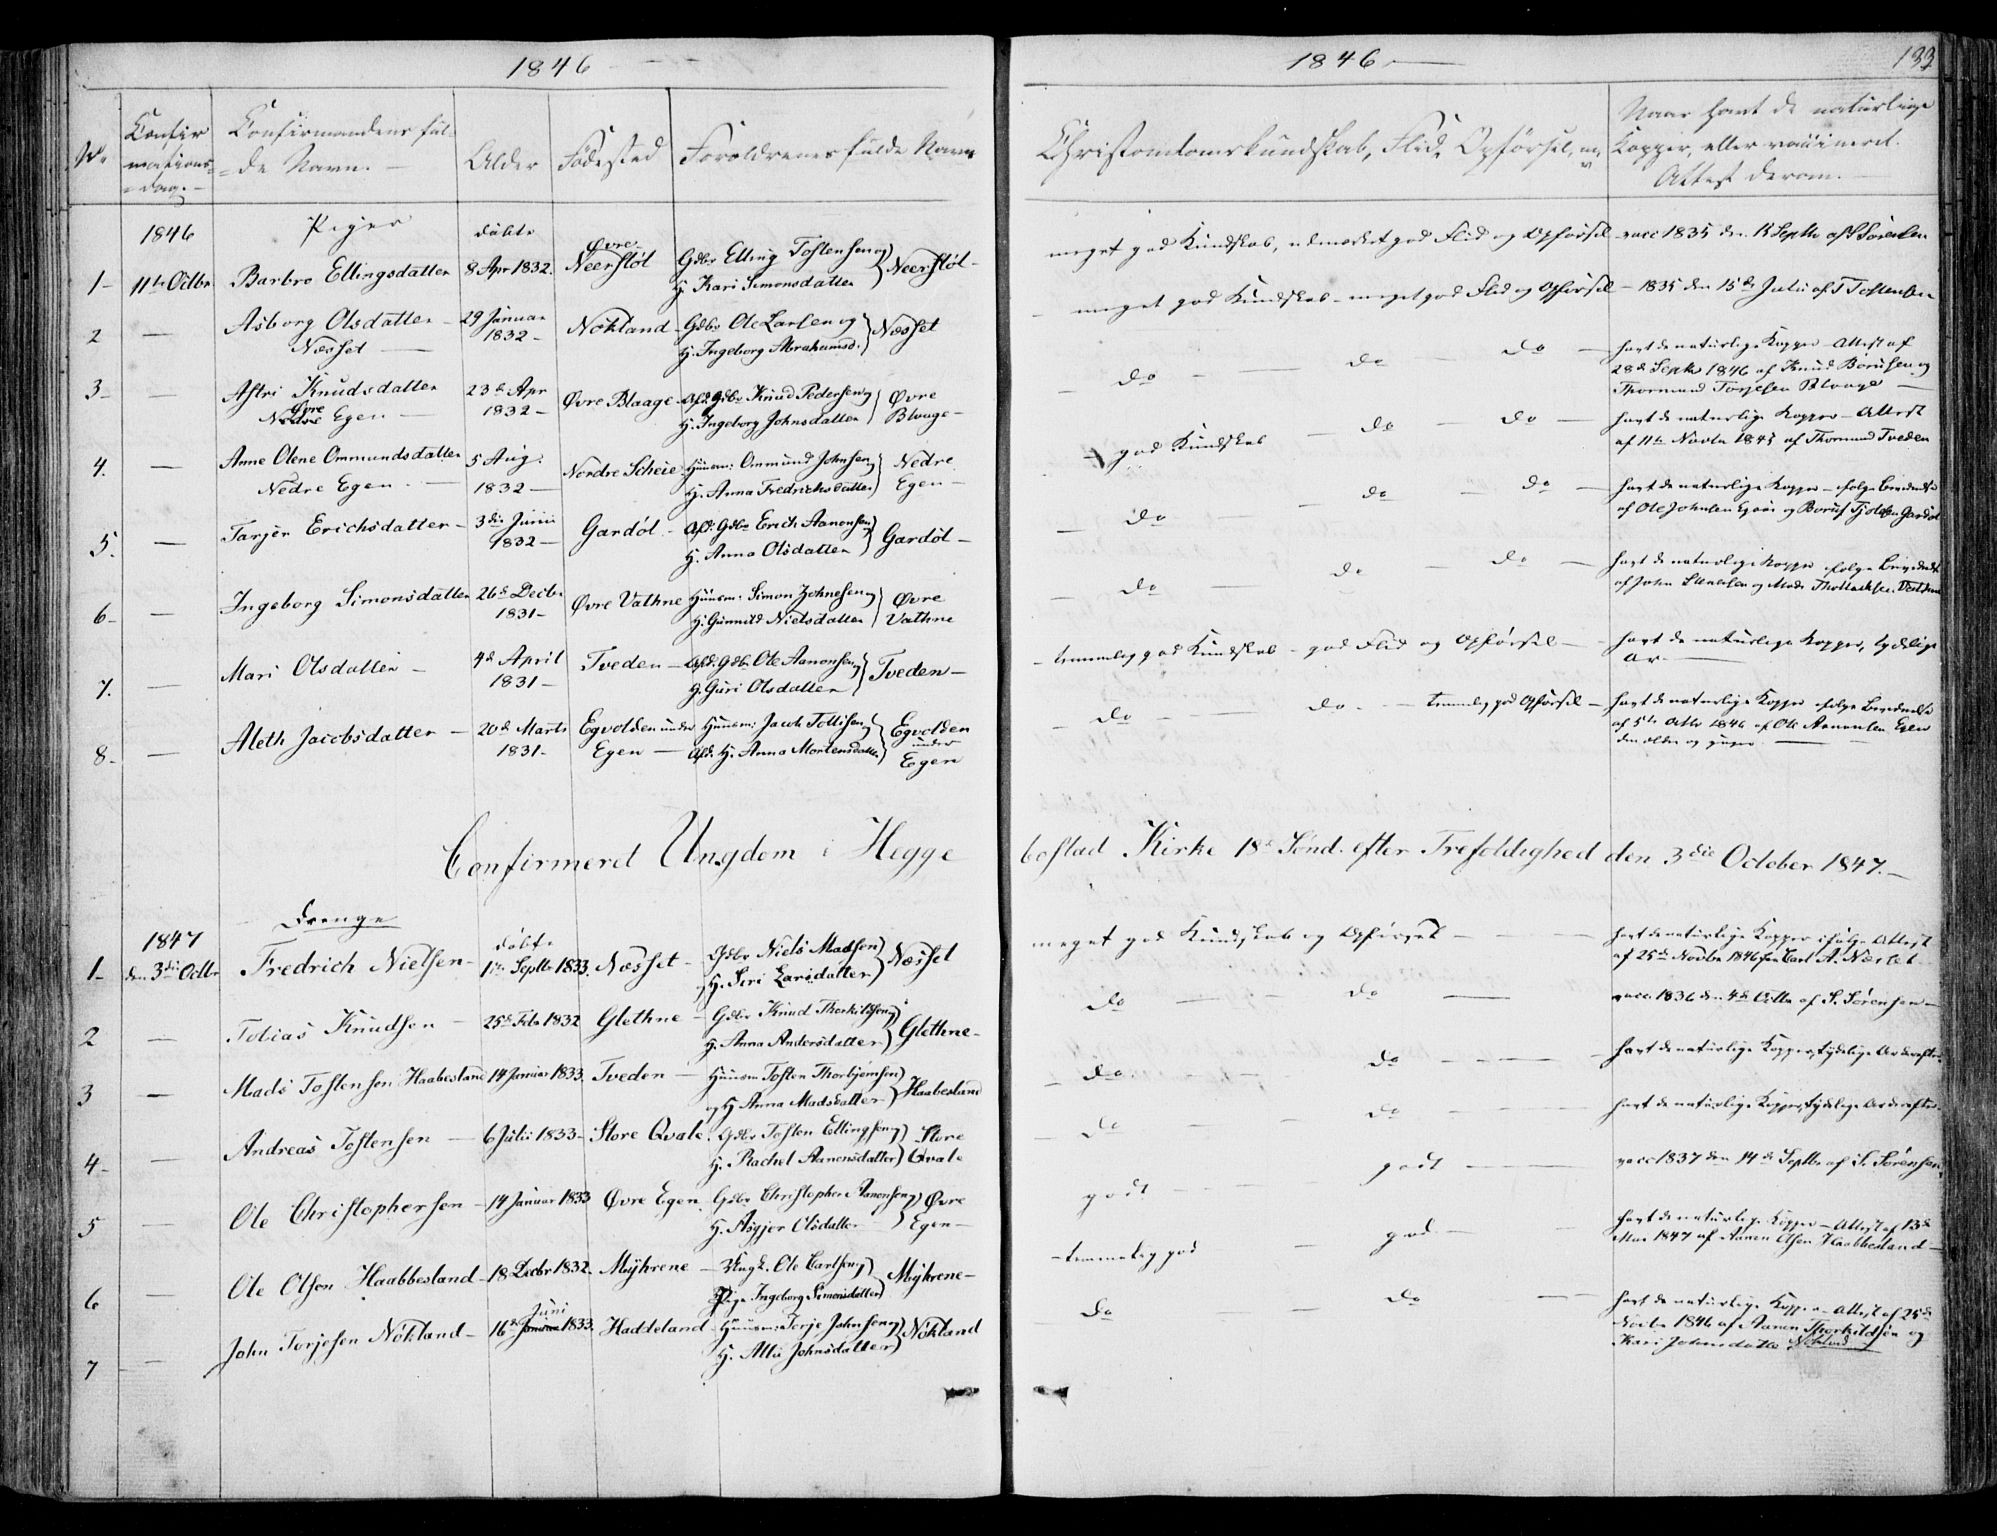 1846
1846
133
No
Confirmationsdag.
Confirmandens fulde Navn.
Alder
Fødested
Forældrenes fulde Navn
Christendomskundskab, Flid, Opførsel
Naar havt de naturlige Kopper, eller vaccineret. Attest derom.
1846 Piger døbte
1- 11te Octbr. Barbro Ellingsdatter 8 Apr 1832. Øvre Neerstøl Gdbr Elling Tostensen og H. Kari Simonsdatter } Neerstøl- meget god Kundskab, udmærket god Flid og Opførsel - vacc 1835 den Septbr af S Sørensen
2 — Asborg Olsdatter - Næsset 29 Januar 1832 - Nökland - Gdbr Ole Larsen og H. Ingeborg Abrahamsd. } Næsset - meget god Kundskab - meget god Flid og Opførsel - 1835 den 15de Julii af T Tostensen
3- — Astri Knudsdatter Nedre Øvre Egen - 23de Apr 1832 - Øvre Blaage - Afd. Gdbr Knud Pedersen og H. Ingeborg Johnsdatter } Øvre Blaage - do - do - do - havt de naturlige Kopper - Attest af 28de Septbr 1846 af Knud Børufsen og Thormund Torjesen Blaage
4. — Anne Olene Ommundsdatter Nedre Egen. - 5 Aug. 1832 - Nordre Scheie Huusm: Ommund Johnsen og H. Anna Fredrichsdatter } Nedre Egen - god Kundskab - do - do - havt de naturlige Kopper - Attest af 11te Novbr 1845 af Thormund Tveden
5. — Tarjer Erichsdatter - 3die Junii 1832 - Gardöl - Afd. Gdbr Erich Aanonsen og H. Anna Olsdatter } Gardöl - do - do - do - havt de naturlige Kopper - ifølge Beviidnelse af Ole Johnsen og Gardöl
6- — Ingeborg Simonsdatter 26de Decbr 1831 - Øvre Vathne Huusm: Simon Johnesen og H. Gunnild Nielsdatter } Øvre Vathne - do - do - do - havt de naturlige Kopper ifølge Beviidnelse af John
7. — Mari Olsdatter - 4de April 1831 - Tveden - Afd. Gdbr Ole Aanonsen og H. Guri Olsdatter } Tveden - - temmelig god Kundskab - god Flid og Opførsel - havt de naturlige Kopper, tydelige Ar
8- — Aleth Jacobsdatter - 20de Marts 1831 - Egvolden under Egen - Huusm: Jacob Tollisen og Afd. H. Anna Mortensdatter } Egvolden under Egen - do - do - temmelig god Opførsel - havt de naturlige Kopper ifølge Beviidnelse af 5te Octbr 1846 af Ole Aanonsen Egen den ældre og yngre
Confirmeret Ungdom i Heggebostad Kirke 18de Sønd. efter Trefoldighed den 3die October 1847. -
Drenge
1847 døbte
1- den 3die Octbr Fredrich Nielsen - Septbr 1833. Næsset - Gdbr Niels Madsen og H. Siri Larsdatter } Næsset meget god Kundskab og Opførsel - havt de naturlige Kopper ifølge Attest af 25de Novbr 1846 fra Carl A. Næsset
2 — Tobias Knudsen - 25de Febr 1832 Glethne - Gdbr Knud Thorkildsen og H. Anna Andersdatter } Glethne - do - do - vacc. 1836 den 4de Octbr af S. Sørensen -
3 — Mads Tostensen Haabesland 14 Januar 1833. Tveden - Huusm Tosten Thorbjørnsen og H Anna Madsdatter } Haabesland - do - do - havt de naturlige Kopper, tydelige Ar derefter
4- — Andreas Tostensen - 6 Julii 1833 - Store Qvale. Gdbr Tosten Ellingsen og H. Rachel Aanonsdatter } Store Qvale - do - do - havt de naturlige Kopper, tydelige Ar derefter
5 — Ole Christophersen - 14 Januar 1833 Øvre Egen Gdbr Christopher Aanonsen og H. Asgjer Olsdatter } Øvre Egen - godt - godt - vacc 1837 den 14de Septbr af S. Sørensen
6 — Ole Olsen Haabbesland - 18 Decbr 1832. Myhrene - Ungk. Ole Carlsen og Pige Ingeborg Simonsdatter } Myhrene - - temmelig god - god - havt de naturlige Kopper - Attest af 13de Mai 1847 af Aanen Olsen Haabbesland -
7 — John Torjesen Nökland - 16de Januar Juni 1833. Haddeland - Huusm: Torje Johnsen og H. Atlu Johnsdatter } Nökland do - do - havt de naturlige Kopper - Attest af 25de Novbr 1846 af Aanen Thorkildsen og Kari Johnsdatter Nökland